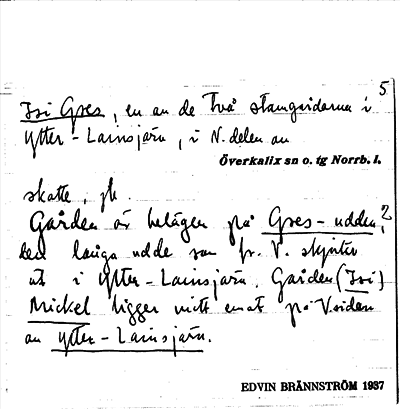 5
Isi Gres, en av de två stamgårdarna i
Ytter-Lainsjärv, i N. delen av
Överkalix sn o. tg Norrb. l.
skatte, jb.
Gården är belägen på Gres-udden,2
den långa udde som fr. V. skjuter
ut i Ytter-Lainsjärv. Gården (Isi)
Mickel ligger mitt emot på V. sidan
av Ytter-Lainsjärv.
EDVIN BRÄNNSTRÖM 1937